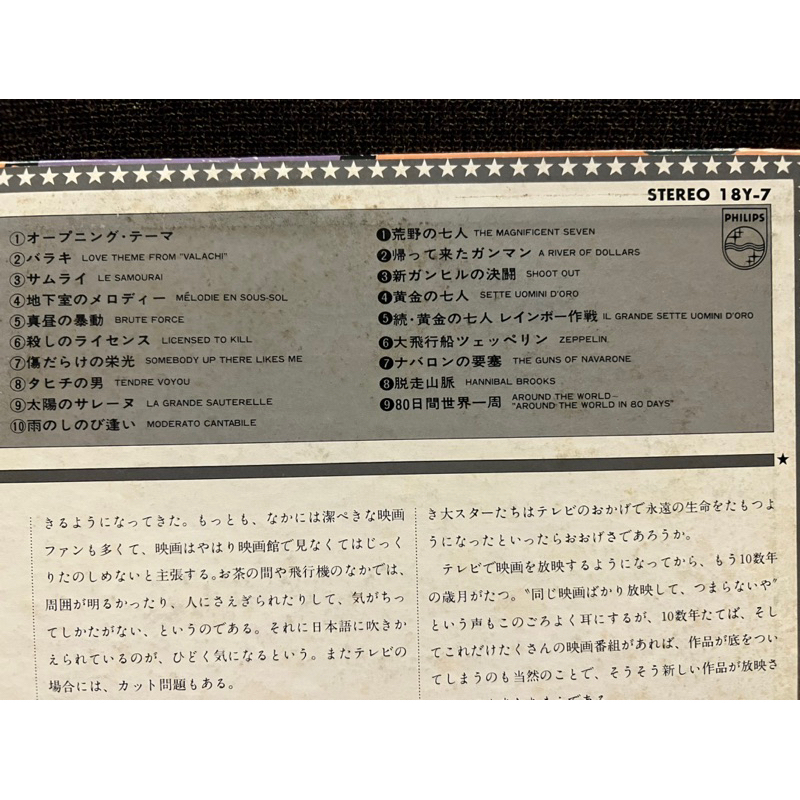 STEREO 18Y-7
PHILIPS
①オープニング・テーマ
②バラキ LOVE THEME FROM "VALACHI"
③サムライ LE SAMOURAI
④地下室のメロディー MÉLODIE EN SOUS-SOL
⑤真昼の暴動 BRUTE FORCE
⑥殺しのライセンス LICENSED TO KILL
⑦傷だらけの栄光 SOMEBODY UP THERE LIKES ME
⑧タヒチの男 TENDRE VOYOU
⑨太陽のサレーヌ LA GRANDE SAUTERELLE
⑩雨のしのび逢い MODERATO CANTABILE
❶荒野の七人 THE MAGNIFICENT SEVEN
❷帰って来たガンマン A RIVER OF DOLLARS
❸新ガンヒルの決闘 SHOOT OUT
❹黄金の七人 SETTE UOMINI D'ORO
❺続・黄金の七人 レインボー作戦 IL GRANDE SETTE UOMINI D'ORO
❻大飛行船ツェッペリン ZEPPELIN
❼ナバロンの要塞 THE GUNS OF NAVARONE
❽脱走山脈 HANNIBAL BROOKS
❾80日間世界一周 AROUND THE WORLD–
"AROUND THE WORLD IN 80 DAYS"
きるようになってきた。もっとも、なかには潔ぺきな映画
ファンも多くて、映画はやはり映画館で見なくてはじっく
りたのしめないと主張する。お茶の間や飛行機のなかでは、
周囲が明るかったり、人にさえぎられたりして、気がちっ
てしかたがない、というのである。それに日本語に吹きか
えられているのが、ひどく気になるという。またテレビの
場合には、カット問題もある。
き大スターたちはテレビのおかげで永遠の生命をたもつよ
うになったといったらおおげさであろうか。
テレビで映画を放映するようになってから、もう10数年
の歳月がたつ。"同じ映画ばかり放映して、つまらないや"
という声もこのごろよく耳にするが、10数年たてば、そし
てこれだけたくさんの映画番組があれば、作品が底をつい
てしまうのも当然のことで、そうそう新しい作品が放映さ